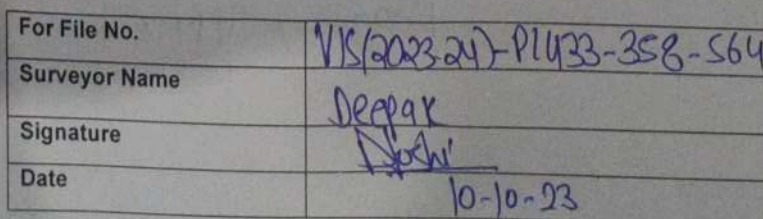 For File No. VIS(2023-24)-PL433-358-564
Surveyor Name Deepak
Signature Joshi
Date 10-10-23